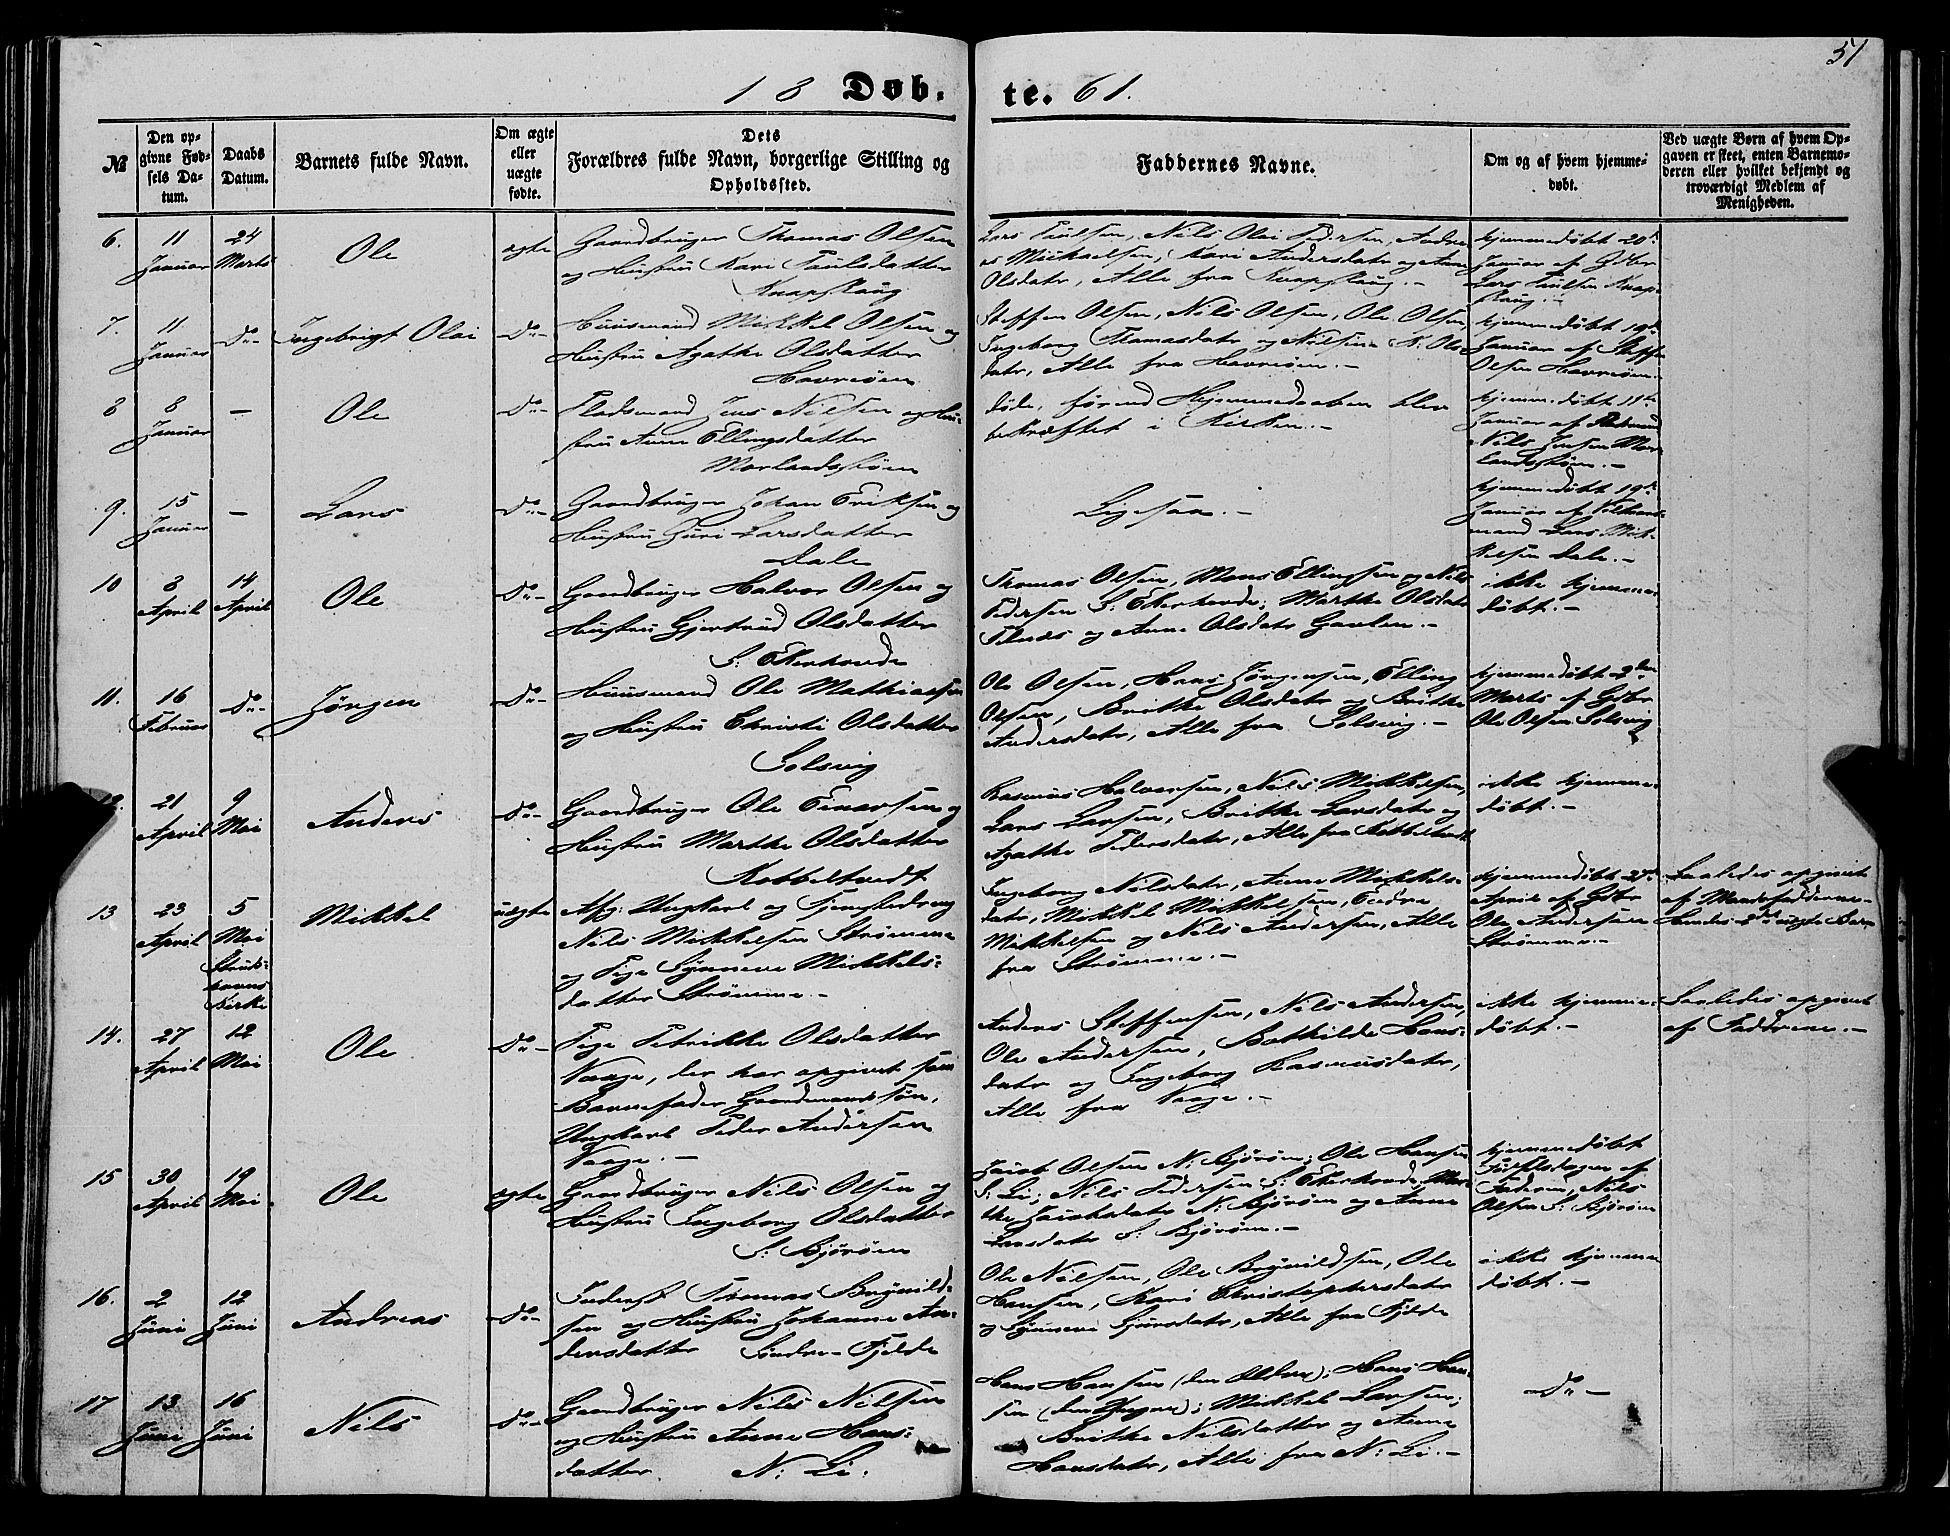 51
18 Døb-te. 61.
№
Den opgivne Fødsels Datum.
Daabs Datum.
Barnets fulde Navn.
Om ægte eller uægte fødte.
Dets
Forældres fulde Navn, borgerlige Stilling og
Opholdssted.
Faddernes Navne.
Om og af hvem hjemmedøbt.
Ved uægte Børn af hvem Opgaven er skeet, enten Barnemoderen eller hvilket bekjendt og troværdigt Medlem af Menigheden.
6.
11 Januar
24 Marts
Ole
ægte
Gaardbruger Thomas Olsen
og Hustru Kari Paulsdatter
Knapskaug
Lars Paulsen, Nils Olai Pedersen, Andre-
as Michaelsen, Kari Andersdatr og Anne
Olsdatr, Alle fra Knapskaug.-
hjemmedøbt 20de
Januar af Gdbr
Lars Paulsen Knap-
skaug.-
7.
11 Januar
Do-
Ingebrigt Olai
Do-
Huusmand Mikkel Olsen og
Hustru Agathe Olsdatter
Havreøen
Steffen Olsen, Nils Olsen, Ole Olsen,
Ingeborg Thomasdatr og Nilsine N: Ols-
datr, Alle fra Havreøen.-
hjemmedøbt 19de
Januar af Steffen
Olsen Havreøen.-
8
8 Januar
-
Ole
Do-
Pladsmand Jens Nilsen og Hu-
stru Anne Ellingsdatter
Morlandsstøen
døde, førend Hjemmedaaben blev
bekræftet i Kirken.-
hjemmedøbt 11te
Januar af Pladsmand
Nils Jensen Mor-
landsstøen.-
9.
15 Januar
-
Lars
Do-
Gaardbruger Johan Eriksen og
Hustru Guri Larsdatter
Dale
Ligesaa.-
hjemmedøbt 19de
Januar af
mand Lars Mik-
kelsen Dale.-
10
8 April
14 April
Ole
Do-
Gaardbruger Halvor Olsen og
Hustru Gjertrud Olsdatter
S: Ekerhovde
Thomas Olsen, Mons Ellingsen og Nils
Pedersen S: Ekerhovde; Marthe Olsdatr
Flæs og Anne Olsdatr Gaulen.-
ikke hjemme-
døbt.-
11.
16 Februar
Do-
Jørgen
Do-
Huusmand Ole Mathiassen
og Hustru Christi Olsdatter
Solsvig
Ole Olsen, Hans Jørgensen, Elling
Olsen, Brithe Olsdatr og Brithe
Andersdatr, Alle fra Solsvig.-
hjemmedøbt 2den
Marts af Gdbr
Ole Olsen Solsvig
12.
21 April
9 Mai
Anders
Do-
Gaardbruger Ole Einersen og
Hustru Marthe Olsdatter
Kobbeltvedt
Rasmus Halvorsen, Nils Mikkelsen,
Lars Larsen, Brithe Larsdatr og
Agathe Pedersdatr, Alle fra Kobbeltvedt
ikke hjemme-
døbt.-
13
23 April
5 Mai
Kirke
Mikkel
uægte
Afg: Ungkarl og Tjenestedreng
Nils Mikkelsen Strømme
og Pige Synneve Mikkels-
datter Strømme.-
Ingeborg Nilsdatr, Anne Mikkels-
datr, Mikkel Mikkelsen, Endre
Mikkelsen og Nils Andersen, Alle
fra Strømme.-
hjemmedøbt
April af Gdbr
Ole Andersen
Strømme.-
Saaledes opgivet
af Mandsfadderne-
Hendes 2det uægte Barn
14.
27 April
12 Mai
Ole
Do-
Pige Petrikke Olsdatter
Vaage, der har opgivet som
Barnefader Gaardmandssøn,
Ungkarl Peder Andersen
Vaage.-
Anders Steffensen, Nils Andersen,
Ole Andersen, Bothilde Hans-
datr og Ingeborg Rasmusdatr,
Alle fra Vaage.-
ikke hjemme-
døbt.-
Saaledes opgivet
af Faddrene.-
15
30 April
19 Mai
Ole
ægte
Gaardbruger Nils Olsen og
Hustru Ingeborg Olsdatter
S: Bjørøen
Jacob Olsen N: Bjørøen; Ole Hansen
S: Li; Nils Pedersen S: Ekerhovde, Mar-
the Jacobsdatr N: Bjørøen og Anne
Larsdatr S: Bjørøen.-
hjemmedøbt
Fødselsdagen af
Faderen, Nils
Olsen S: Bjørøen
16.
2 Juni
12 Juni
Andreas
Do-
Inderst Thomas Brynild-
sen og Hustru Johanne An-
dersdatter Søndre-Fjelde
Ole Nilsen, Ole Brynildsen, Ole
Hansen, Kari Christophersdatr
og Synneve Sjursdatr, Alle fra Fjelde
ikke hjemme-
døbt.-
17
13 Juni
16 Juni
Nils
Do-
Gaardbruger Nils Nilsen
og Hustru Anne Hans-
datter N: Li.
Hans Hansen (den Ældre); Hans Han-
sen (den Yngre); Mikkel Larsen;
Brithe Nilsdatter og Anne
Hansdatr, Alle fra N: Li.-
Do-